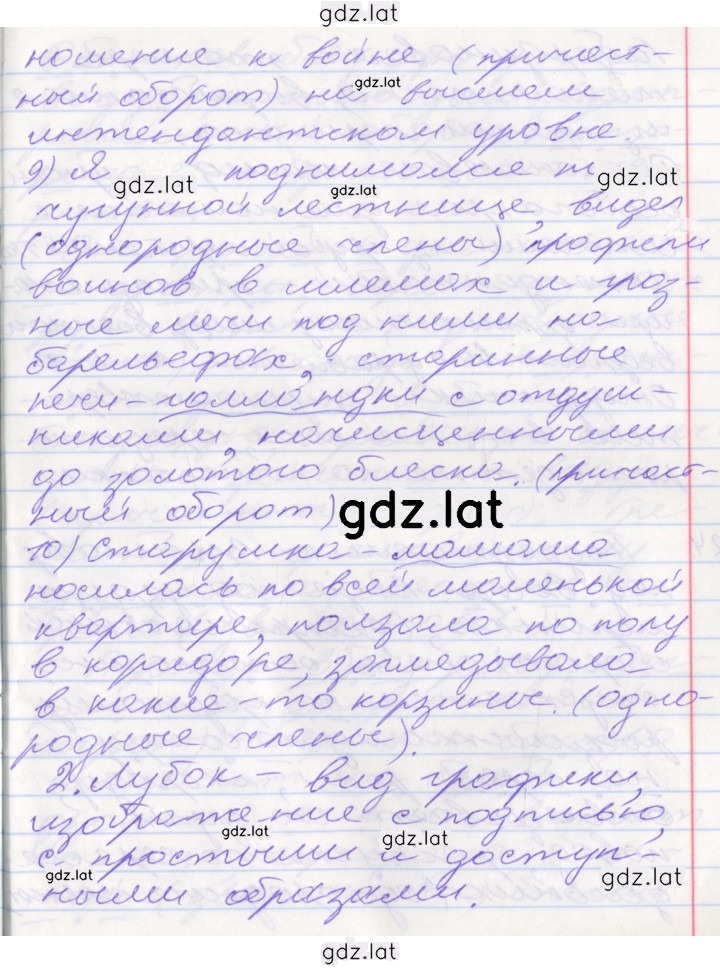 gdz.lat
ношение к войне (причаст-
gdz.lat
ный оборот) на высшем
интендантском уровне.
9) Я поднимался по
gdz.lat
gdz.lat
gdz.lat
чугунной лестнице, видел
(однородные члены) профили
воинов в шлемах и гроз-
ные мечи под ними на
барельефах, старинные
печи-голландки с отдуш-
никами, начищенными
до золотого блеска. (причаст-
ный оборот)
gdz.lat
10) Старушка-мамаша
носилась по всей маленькой
квартире, ползала по полу
в коридоре, заглядывала
в какие-то корзины. (одно-
родные члены).
2. Лубок - вид графики,
изображение с подписью,
gdz.lat
с простыми и доступ-
gdz.lat
gdz.lat
ными образами.
gdz.lat